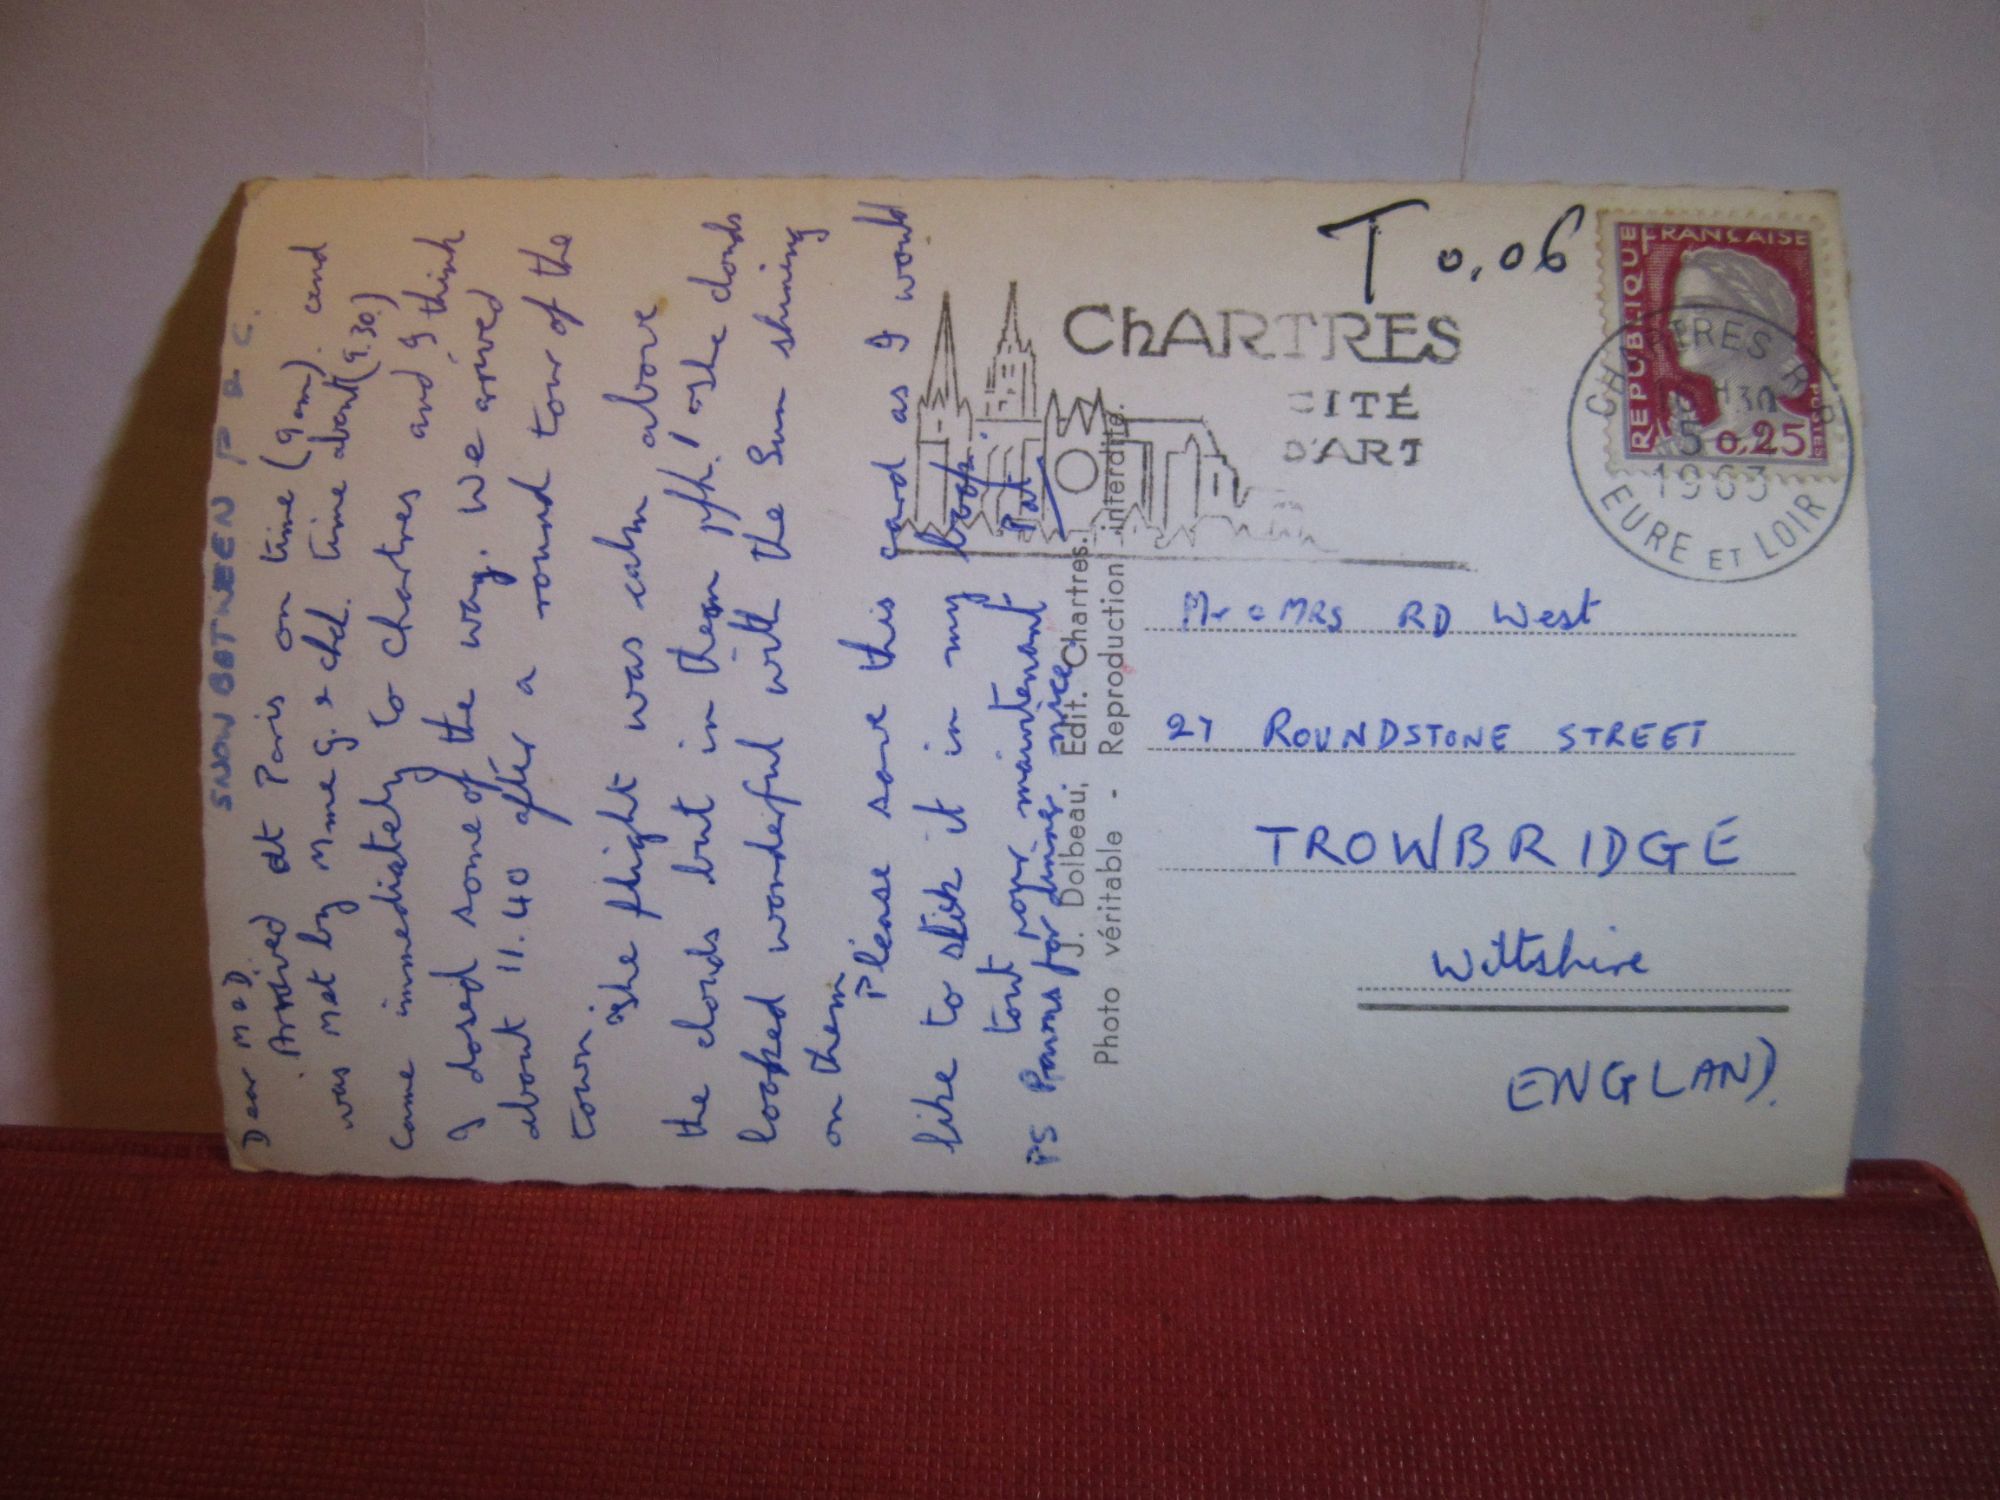 SNOW BETWEEN P & C.
Dear M & D.
Arrived at Paris on time (9 am). and
was met by Mme G. & chd. time about (9.30)
came immediately to Chartres and I think
I dosed some of the way. We arrived
about 11.40 after a round tour of the
town.
The flight was calm above
the clouds but in them pfh! The clouds
looked wonderful with the Sun shining
on them
Please save this card as I would
like to stick it in my book.
tout pour maintenant
Pat
PS Prawns for dinner. nice
J. Dolbeau, Edit. Chartres.
Photo véritable - Reproduction interdite.
T 0,06
ChARTRES
CITÉ
D'ART
REPUBLIQUE FRANÇAISE
0,25
POSTES
CHARTRES R.P.
H30
5
1963
EURE ET LOIR
Mr & MRS RD West
27 ROUNDSTONE STREET
TROWBRIDGE
Wiltshire
ENGLAND.